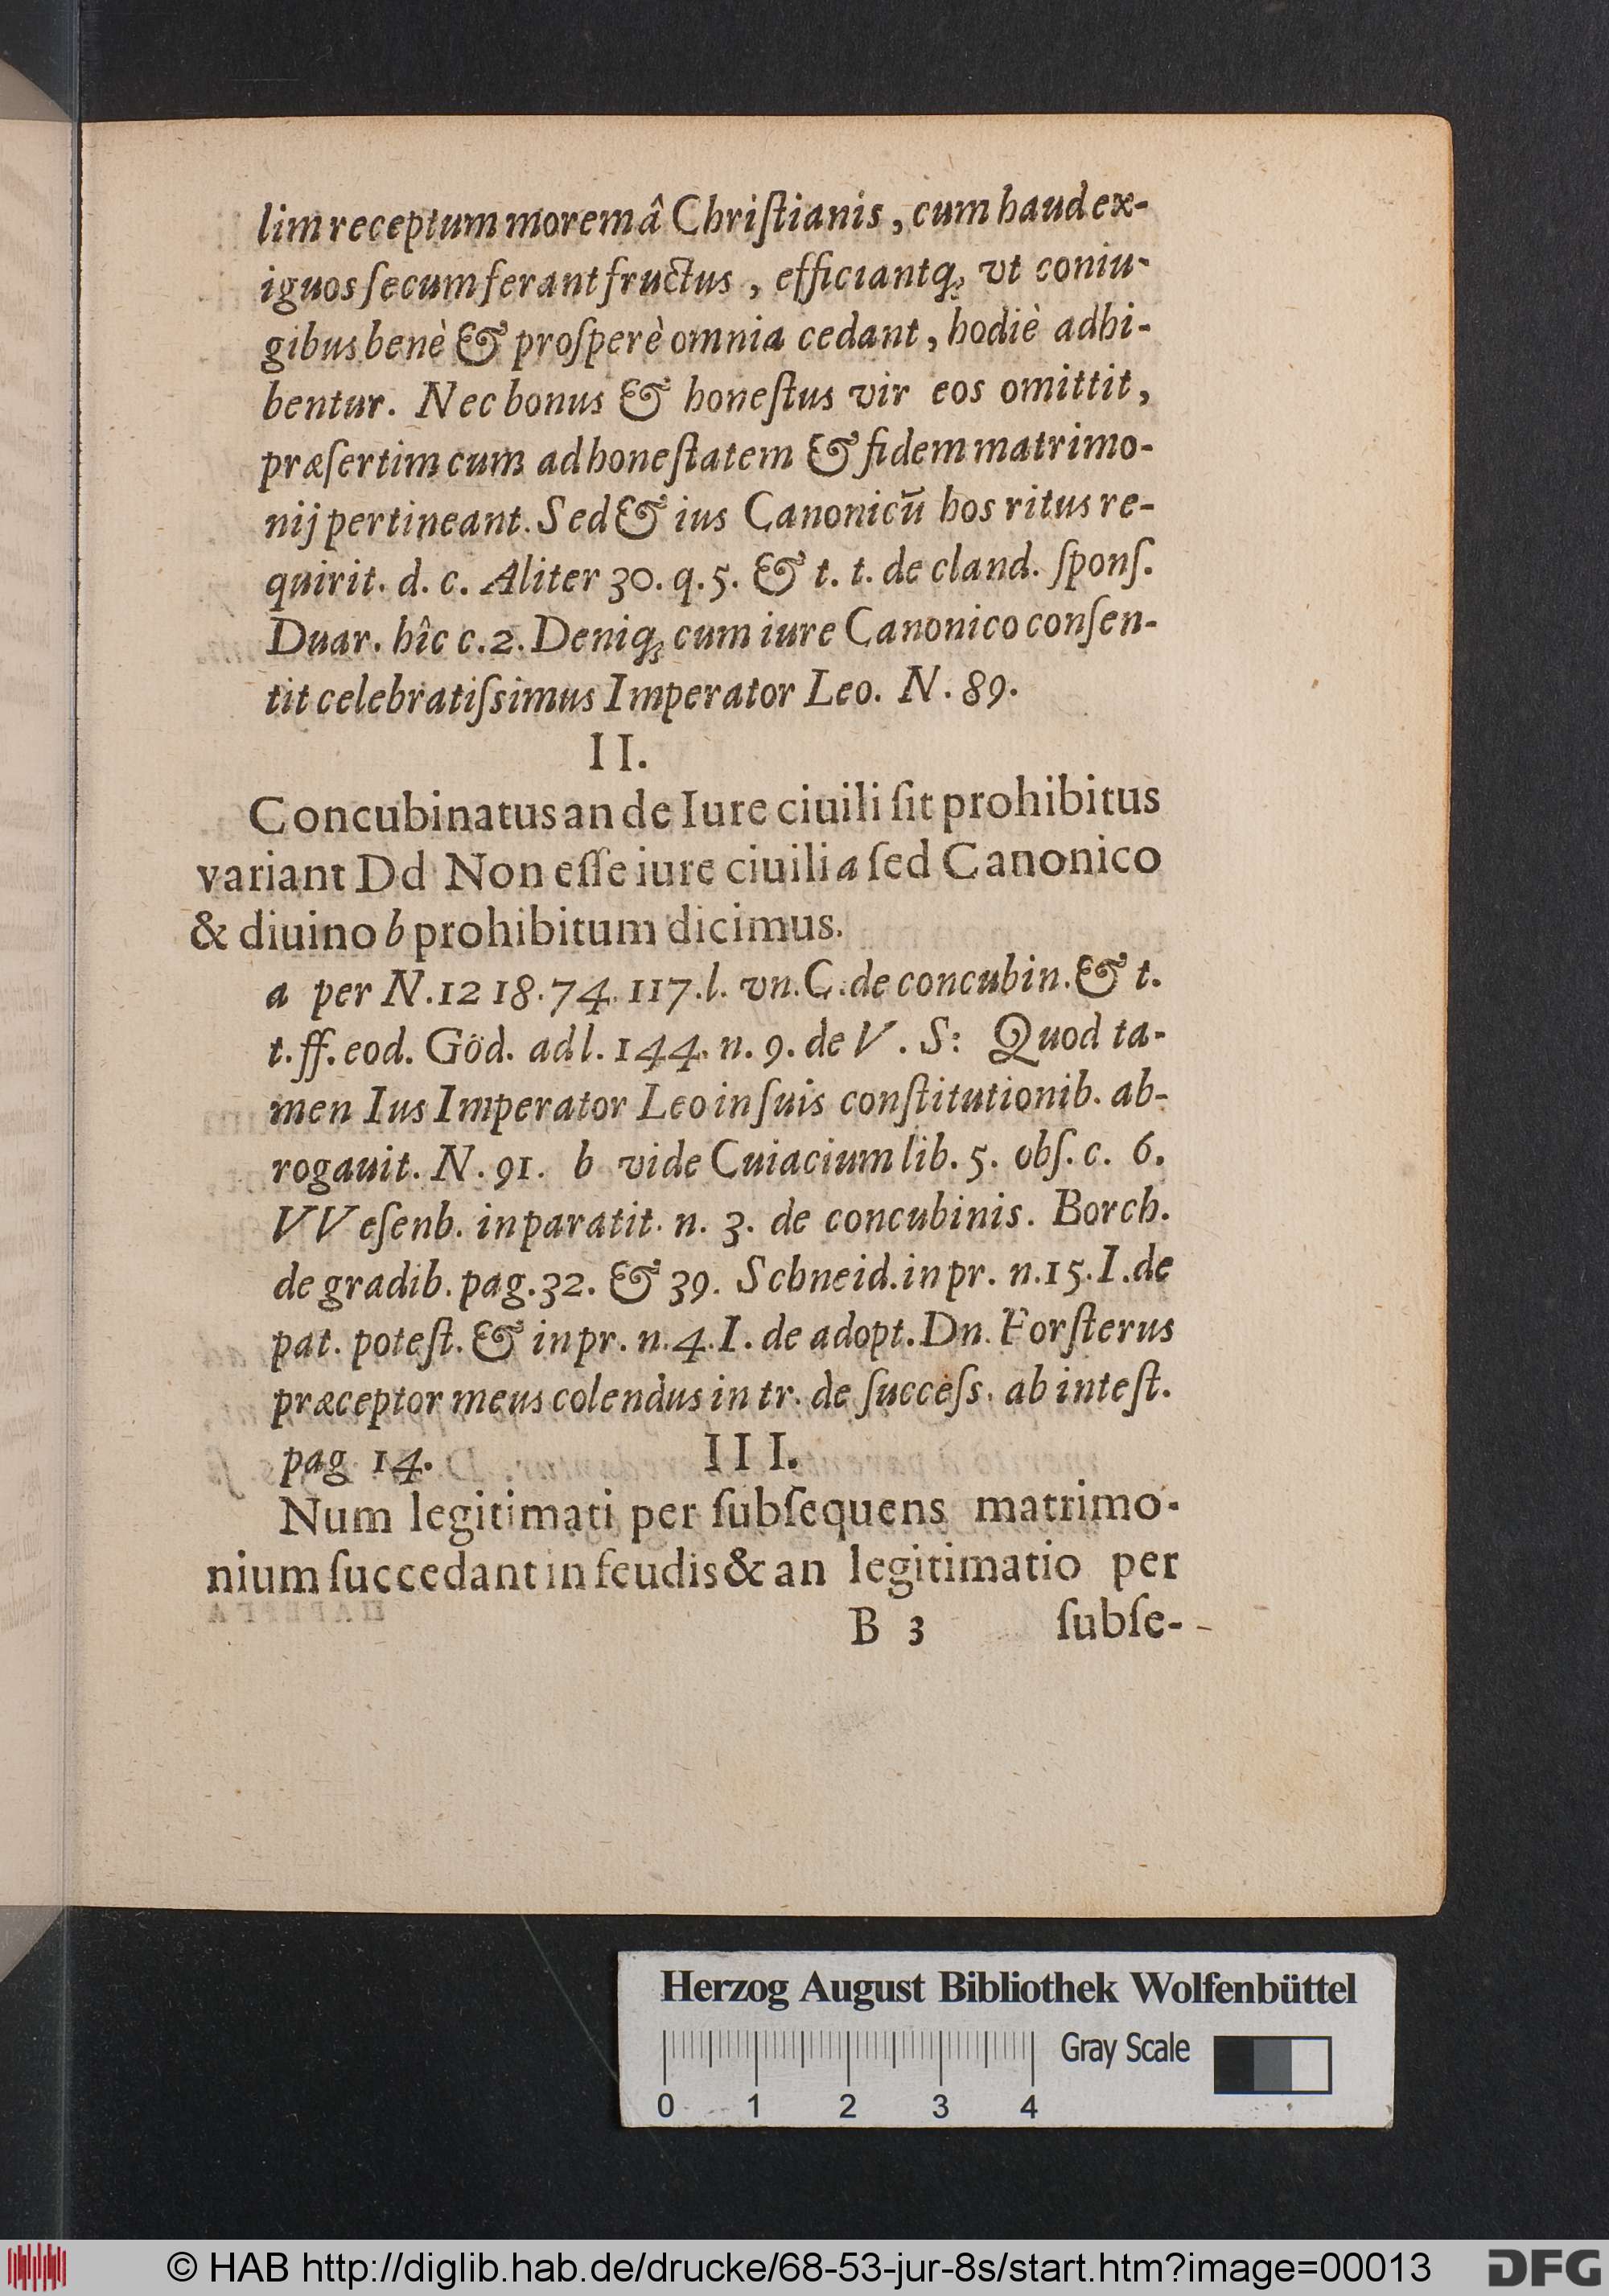 lim receptum morem â Chriſtianis, cum haud ex-
iguos ſecum ferant fructus, efficiantq́ꝫ vt coniu-
gibus benè & proſperè omnia cedant, hodiè adhi-
bentur. Nec bonus & honeſtus vir eos omittit,
præſertim cum ad honeſtatem & fidem matrimo-
nij pertineant. Sed & ius Canonicū hos ritus re-
quirit. d. c. Aliter 30. q. 5. & t. t. de cland. ſponſ.
Duar. hîc c. 2. Deniqꝫ cum iure Canonico conſen-
tit celebratiſsimus Imperator Leo. N. 89.
II.
Concubinatus an de Iure ciuili ſit prohibitus
variant Dd Non eſſe iure ciuili a ſed Canonico
& diuino b prohibitum dicimus.
a per N. 12 18. 74. 117. l. vn. C. de concubin. & t.
t. ff. eod. Göd. ad l. 144. n. 9. de V. S: Quod ta-
men Ius Imperator Leo in ſuis conſtitutionib. ab-
rogauit. N. 91. b vide Cuiacium lib. 5. obſ. c. 6.
VVeſenb. in paratit. n. 3. de concubinis. Borch.
de gradib. pag. 32. & 39. Schneid. in pr. n. 15. I. de
pat. poteſt. & in pr. n. 4. I. de adopt. Dn. Forſterus
præceptor meus colendus in tr. de ſucceſs. ab inteſt.
pag 14. III.
Num legitimati per ſubſequens matrimo-
nium ſuccedant in feudis & an legitimatio per
B 3 ſubſe-
Herzog August Bibliothek Wolfenbüttel
Gray Scale
0 1 2 3 4
© HAB http://diglib.hab.de/drucke/68-53-jur-8s/start.htm?image=00013 DFG